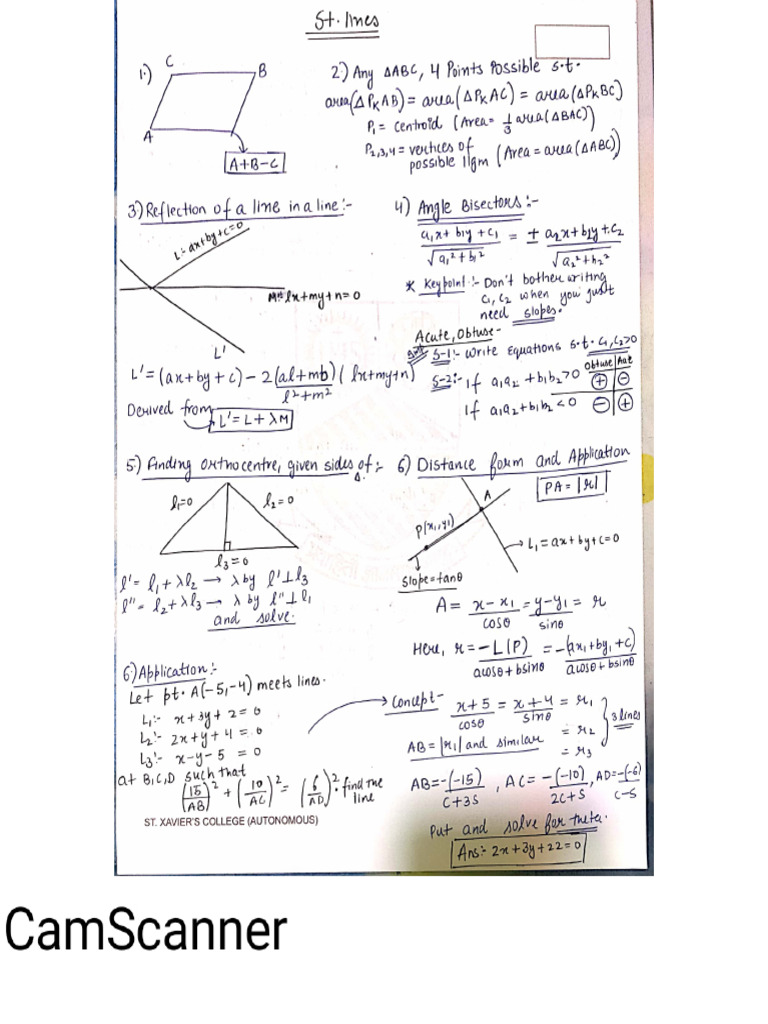 St. lines
1.)
C
B
A
A+B-C
2.) Any ΔABC, 4 Points Possible s.t.
area(ΔPₖAB) = area(ΔPₖAC) = area(ΔPₖBC)
P₁ = centroid (Area = 1/3 area(ΔBAC))
P₂,₃,₄ = vertices of possible llgm (Area = area(ΔABC))
3.) Reflection of a line in a line :-
L = ax+by+c=0
M = lx+my+n=0
L'
L' = (ax+by+c) - 2(al+mb)/(l²+m²) (lx+my+n)
Derived from
L' = L + λM
4) Angle Bisectors :-
(a₁x+b₁y+c₁)/√(a₁²+b₁²) = ± (a₂x+b₂y+c₂)/√(a₂²+b₂²)
* Key point :- Don't bother writing
c₁, c₂ when you just
need slopes.
Acute, Obtuse -
S-1:- Write Equations s.t. c₁, c₂>0
S-2:- If a₁a₂+b₁b₂>0
If a₁a₂+b₁b₂<0
Obtuse Aat
+ -
- +
5.) Finding orthocentre, given sides of Δ :-
l₁=0
l₂=0
l₃=0
l' = l₁+λl₂ → λ by l'⊥l₃
l'' = l₂+λl₃ → λ by l''⊥l₁
and solve.
6) Distance form and Application
PA = |r|
A
P(x₁,y₁)
L₁ = ax+by+c=0
Slope=tanθ
A = (x-x₁)/cosθ = (y-y₁)/sinθ = r
Here, r = -L(P)/(acosθ+bsinθ) = -(ax₁+by₁+c)/(acosθ+bsinθ)
6) Application :-
Let pt. A(-5,-4) meets lines.
L₁:- x+3y+2=0
L₂:- 2x+y+4=0
L₃:- x-y-5=0
at B,C,D such that
(15/AB)² + (10/AC)² = (6/AD)². find the line
Concept - (x+5)/cosθ = (x+4)/sinθ = r₁
= r₂
= r₃
3 lines
AB = |r₁| and similar
AB = -(-15)/(C+3S), AC = -(-10)/(2C+S), AD = -(-6)/(C-S)
Put and solve for theta.
Ans:- 2x+3y+22=0
ST. XAVIER'S COLLEGE (AUTONOMOUS)
CamScanner